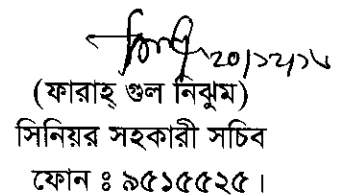 ২০/১২/১৮
(ফারাহ্ গুল নিঝুম)
সিনিয়র সহকারী সচিব
ফোন ঃ ৯৫১৫৫২৫।